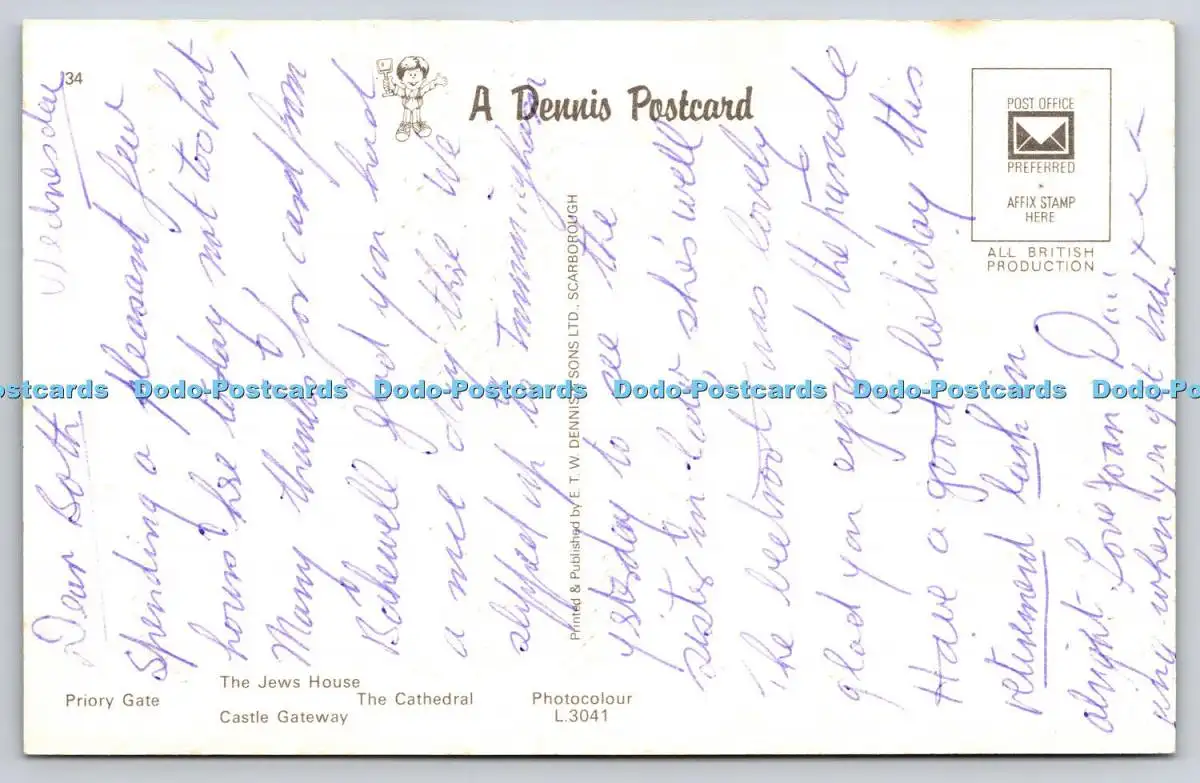 34
A Dennis Postcard
POST OFFICE
PREFERRED
AFFIX STAMP
HERE
ALL BRITISH
PRODUCTION
Printed & Published by E. T. W. DENNIS & SONS LTD., SCARBOROUGH
Priory Gate
The Jews House
Castle Gateway
The Cathedral
Photocolour
L.3041
Wednesday
Dear Both
Spending a pleasant few
hours here today not too hot
Many thanks for card from
Bakewell glad you had
a nice day there We
slipped up to Immingham
yesterday to see the
sister in law she's well
The beetroot was lovely
glad you enjoyed the parade
Have a good holiday this
returned lush in
alright Love Joan
ring when you get back x x x x
Dodo-Postcards Dodo-Postcards Dodo-Postcards Dodo-Postcards Dodo-Postcards